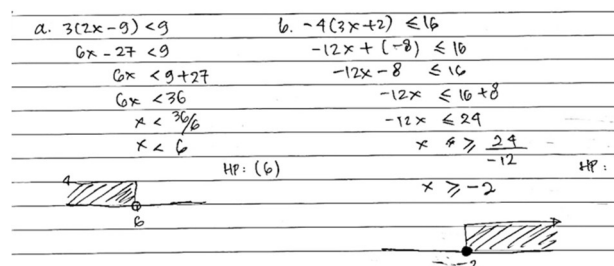 a. 3(2x-9) < 9
6x - 27 < 9
6x < 9+27
6x < 36
x < 36/6
x < 6
HP: (6)
6
b. -4(3x+2) ≤ 16
-12x + (-8) ≤ 16
-12x - 8 ≤ 16
-12x ≤ 16 + 8
-12x ≤ 24
x ≥ 24/-12
HP:
x ≥ -2